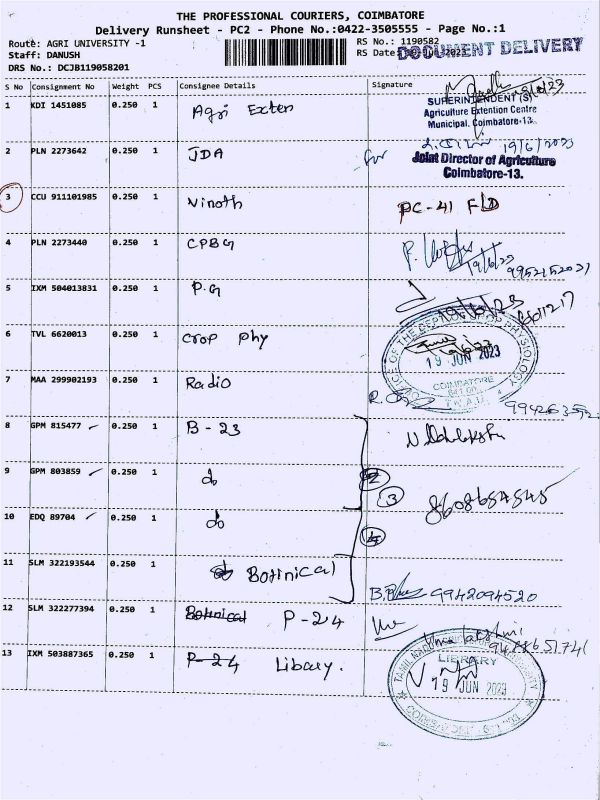 THE PROFESSIONAL COURIERS, COIMBATORE
Delivery Runsheet - PC2 - Phone No.:0422-3505555 - Page No.:1
Route: AGRI UNIVERSITY -1
RS No.: 1190582
Staff: DANUSH
RS Date
DOCUMENT DELIVERY
DRS No.: DCJB119058201
S No Consignment No Weight PCS Consignee Details Signature
1 KDI 1451085 0.250 1 Agri Exten
SUPERINTENDENT (S)
Agriculture Extention Centre
Municipal, Coimbatore-13.
2 PLN 2273642 0.250 1 JDA
for 19/6/2023
Joint Director of Agriculture
Coimbatore-13.
3 CCU 911101985 0.250 1 Vinoth PC-41 FLD
4 PLN 2273440 0.250 1 CPBG
19/6/23
9952152021
5 IXM 504013831 0.250 1 P.G
19/6/23
6 TVL 6620013 0.250 1 Crop Phy
19 JUN 2023
COIMBATORE
7 MAA 299902193 0.250 1 Radio
8 GPM 815477 0.250 1 B-23
9 GPM 803859 0.250 1 do
3
8608684845
10 EDQ 89704 0.250 1 do
4
11 SLM 322193544 0.250 1 Botinical
9942094520
12 SLM 322277394 0.250 1 Botnical P-24
13 IXM 503887365 0.250 1 P-24 Libary.
LIBRARY
19 JUN 2023